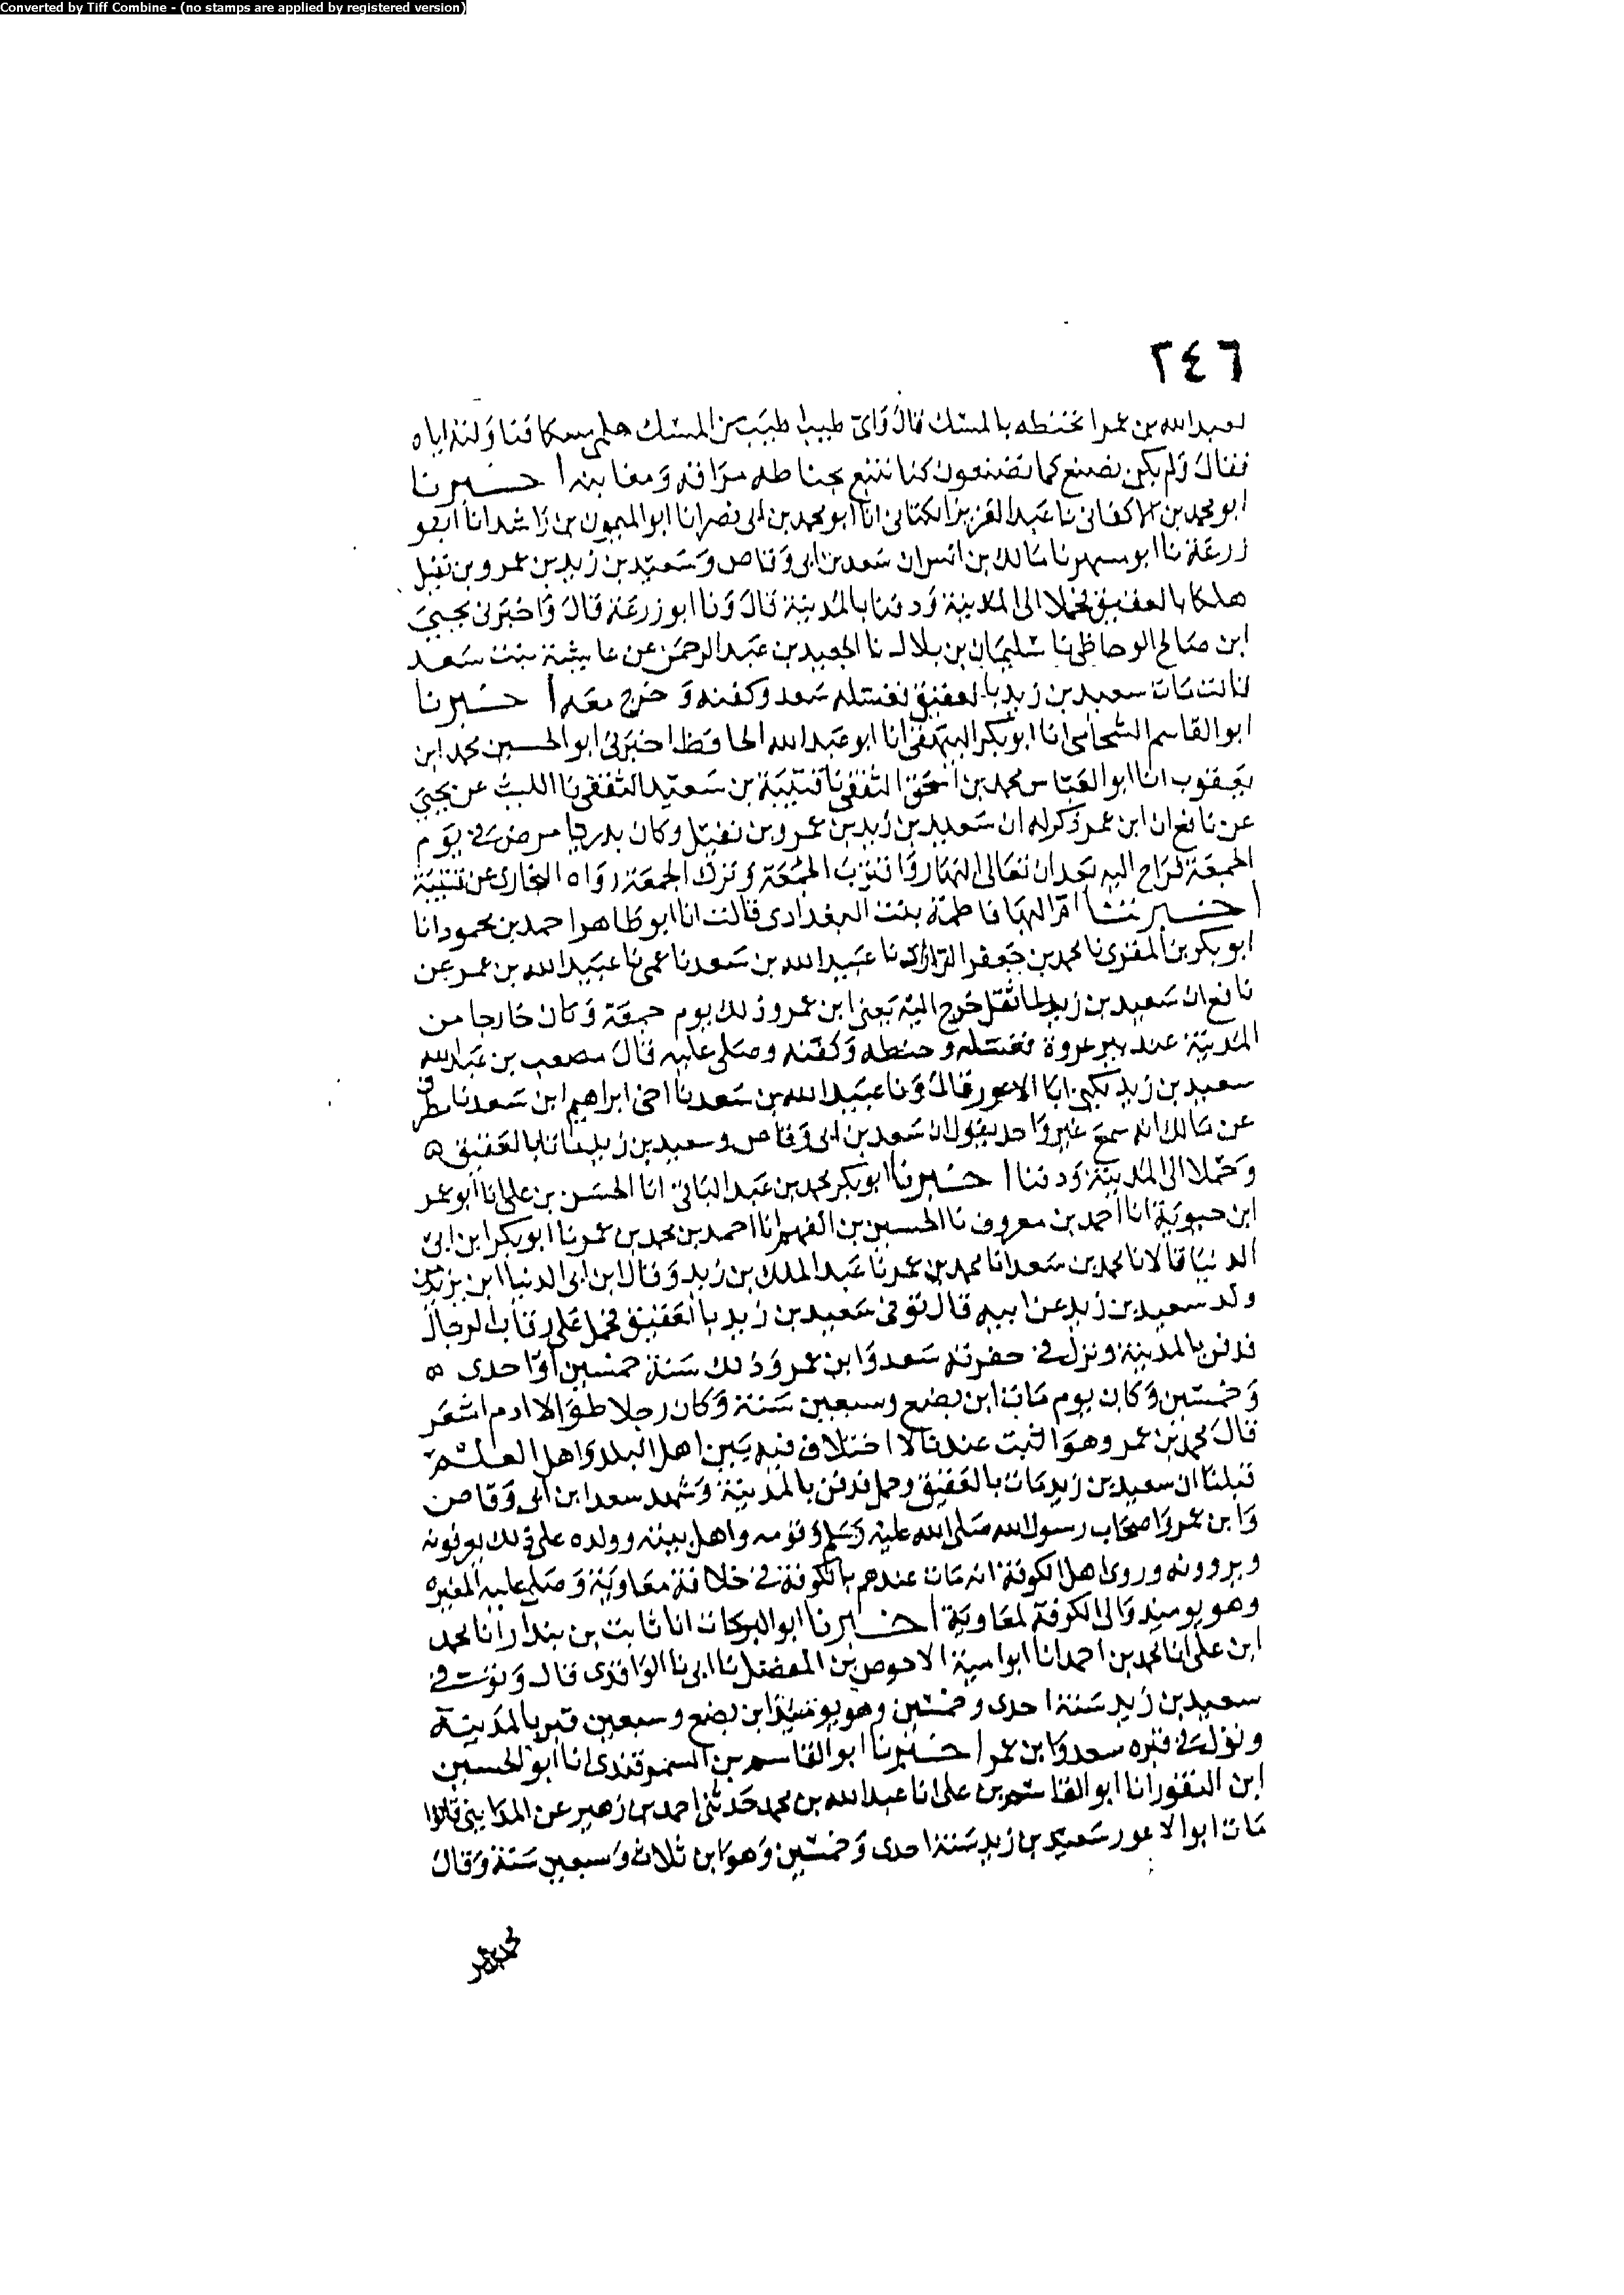 Converted by Tiff Combine - (no stamps are applied by registered version)
٢٤٦
لعبد الله بن عمر اتحنطه بالمسك قال واي طيب اطيب من المسك هلمي مسكا فناولته اياه
فقال ولم يكن نصنع كما تصنعون كنا نتبع بحناطه مراقه ومغابنه اخبرنا
ابو محمد بن الاكفاني نا عبد العزيز الكتاني انا ابو محمد بن ابي نصر انا ابو الميمون بن راشد انا ابو
زرعة نا ابو مسهر نا مالك بن انس ان سعد بن ابي وقاص وسعيد بن زيد بن عمرو بن نفيل
هلكا بالعقيق فحملا الى المدينة ودفنا بالمدينة قال ونا ابو زرعة قال واخبرني يحيى
ابن صالح الوحاظي نا سليمان بن بلال نا الجعيد بن عبد الرحمن عن عايشة بنت سعد
قالت مات سعيد بن زيد بالعقيق فغسله سعد وكفنه وخرج معه اخبرنا
ابو القاسم الشحامي انا ابو بكر البيهقي انا ابو عبد الله الحافظ اخبرني ابو الحسين محمد ابن
يعقوب انا ابو العباس محمد بن اسحق الثقفي نا قتيبة بن سعيد الثقفي نا الليث عن يحيى
عن نافع ان ابن عمر ذكر له ان سعيد بن زيد بن عمرو بن نفيل وكان بدريا مرض في يوم
الجمعة فراح اليه بعد ان تعالى النهار واقتربت الجمعة وترك الجمعة رواه البخاري عن قتيبة
اخبرتنا ام البها فاطمة بنت البغدادي قالت انا ابو طاهر احمد بن محمود انا
ابو بكر بن المقري نا محمد بن جعفر الزراد نا عبيد الله بن سعد نا عمي نا عبيد الله بن عمر عن
نافع ان سعيد بن زيد لما ثقل خرج اليه يعني ابن عمر وذلك يوم جمعة وكان خارجا من
المدينة عند بير عروة فغسله وحنطه وكفنه وصلى عليه قال مصعب بن عبد الله
سعيد بن زيد يكنى ابا الاعور قال ونا عبيد الله بن سعد نا اخي ابراهيم ابن سعد نا مطرف
عن مالك انه سمع غير واحد يقول ان سعد بن ابي وقاص وسعيد بن زيد ماتا بالعقيق ه
وحملا الى المدينة ودفنا اخبرنا ابو بكر محمد بن عبد الباقي انا الحسن بن علي انا ابو عمر
ابن حيوية انا احمد بن معروف نا الحسين بن الفهم انا احمد بن محمد بن عمر نا ابو بكر ابن ابي
الدنيا قالا نا محمد بن سعد انا محمد بن عمر نا عبد الملك بن زيد وقال ابن ابي الدنيا ابن يزيد من
ولد سعيد بن زيد عن ابيه قال توفي سعيد بن زيد بالعقيق فحمل على رقاب الرجال
فدفن بالمدينة ونزل في حفرته سعد وابن عمر وذلك سنة خمسين او احدى ه
وخمسين وكان يوم مات ابن بضع وسبعين سنة وكان رجلا طوالا ادم اشعر
قال محمد بن عمر وهو الثبت عندنا لا اختلاف فيه بين اهل البلد واهل العلم
قبلنا ان سعيد بن زيد مات بالعقيق وحمل فدفن بالمدينة وشهد سعد ابن ابي وقاص
وابن عمر واصحاب رسول الله صلى الله عليه وسلم وقومه واهل بيته وولده على ذلك يعرفونه
ويروونه وروى اهل الكوفة انه مات عندهم بالكوفة في خلافة معاوية وصلى عليه المغيره
وهو يوميذ والي الكوفة لمعاوية اخبرنا ابو البركات انا ثابت بن بندار انا محمد
ابن علي انا محمد بن احمد انا ابو امية الاحوص بن المفضل نا ابي نا الواقدي قال وتوفي
سعيد بن زيد سنة احدى وخمسين وهو يومئذ ابن بضع وسبعين قبر بالمدينة
ونزل في قبره سعد وابن عمر اخبرنا ابو القاسم بن السمرقندي انا ابو الحسين
ابن النقور انا ابو القاسم بن علي انا عبد الله بن محمد حدثني احمد بن زهير عن المدايني قال
مات ابو الاعور سعيد بن زيد سنة احدى وخمسين وهو ابن ثلاث وسبعين سنة وقال
محمد بن عمر